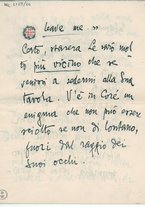 leave me »
Certo, stasera Le sarò mol
to più vicino che se
venissi a sedermi alla Sua
tavola. V'è in Cosé un
enigma che non può essere
sciolto se non di lontano,
fuori dal raggio dei
Suoi occhi.